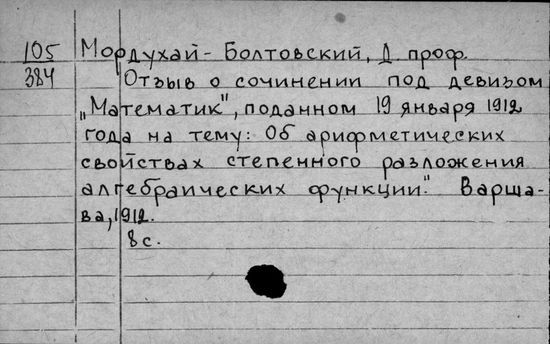 105 Мордухай-Болтовский, Д. проф.
384 Отзыв о сочинении под девизом
„Математик", поданном 19 января 1912
года на тему: Об арифметических
свойствах степенного разложения
алгебраических функции." Варша-
ва, 1912.
8 с.